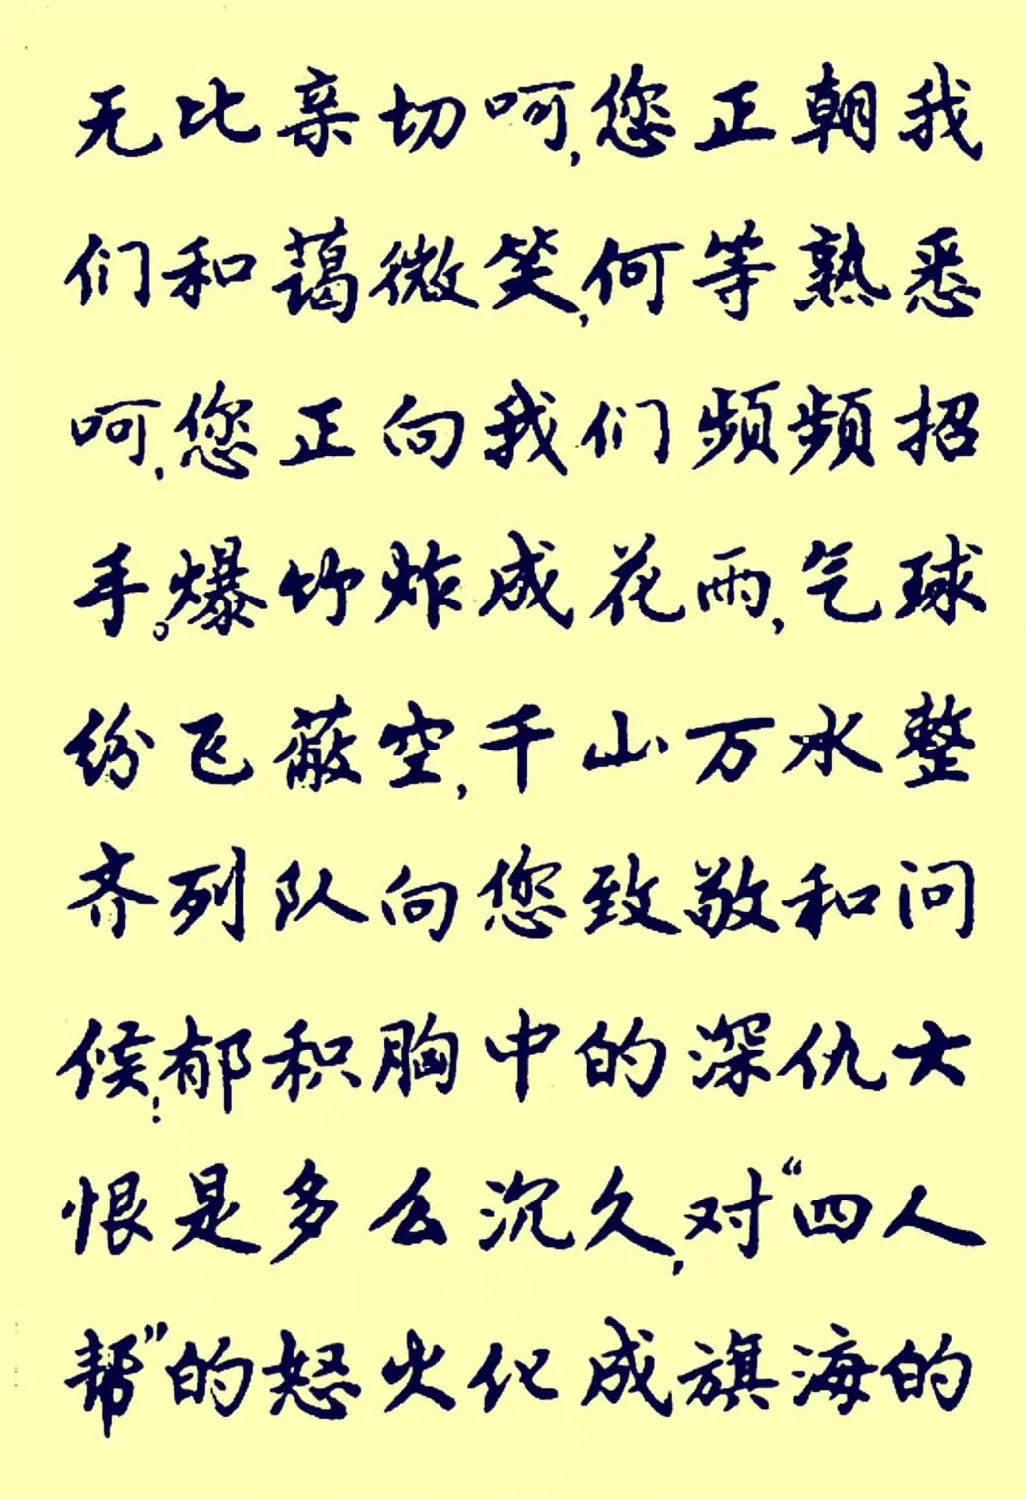 无比亲切呵,您正朝我
们和蔼微笑,何等熟悉
呵,您正向我们频频招
手。爆竹炸成花雨,气球
纷飞蔽空,千山万水整
齐列队向您致敬和问
候!郁积胸中的深仇大
恨是多么沉久,对“四人
帮”的怒火化成旗海的